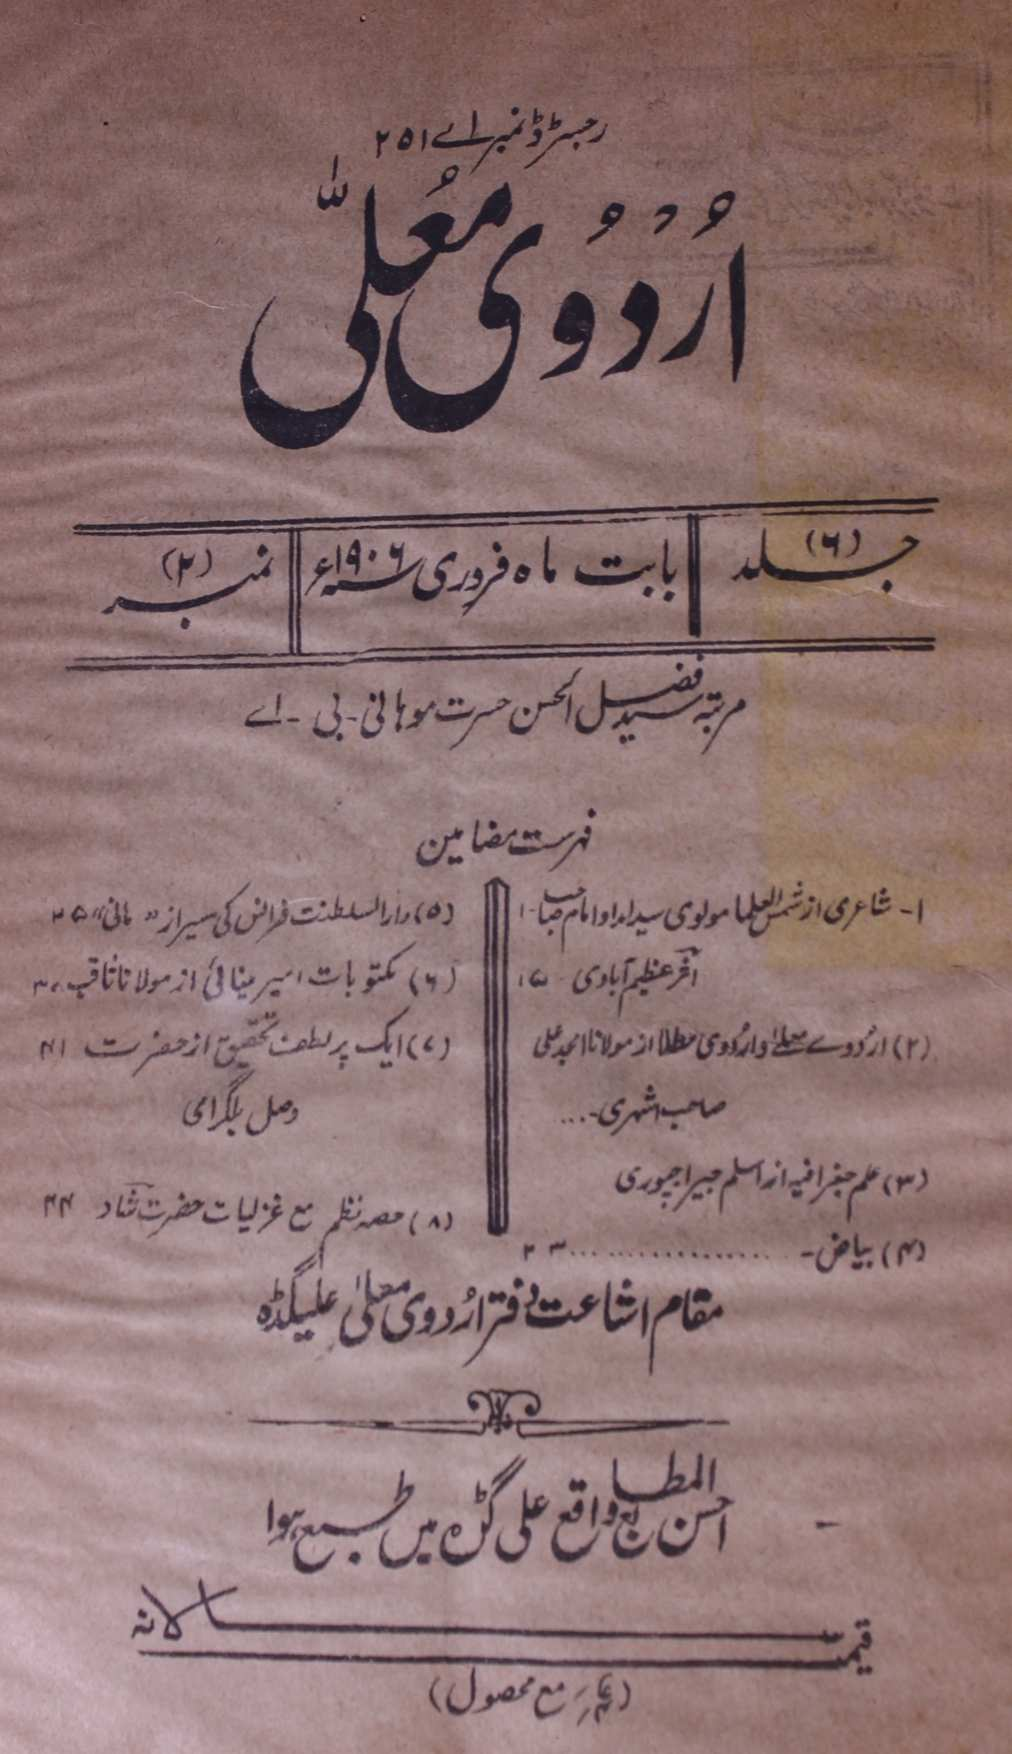 رجسٹرڈ نمبر اے ۲۵۱
اُردُوی مُعلّیٰ
جلد (۶)
بابت ماہ فروری سنہ ۱۹۰۶ء
نمبر (۲)
مرتبہ سید فضل الحسن حسرت موہانی - بی - اے
فہرست مضامین
۱- شاعری از شمس العلما مولوی سید امداد امام صاحب - ۱
اثر عظیم آبادی ۱۵
(۲) اردوے معلیٰ و اردوی مطلا از مولانا امجد علی
صاحب اشہری - ...
(۳) علم جغرافیہ از اسلم جیراجپوری
(۴) بیاض - .............. ۲۳
(۵) دار السلطنت فرانس کی سیر از "مانی" ۲۵
(۶) مکتوبات امیر مینائی از مولانا ثاقب ۳۰
(۷) ایک پر لطف تحقیق از حضرت ۴۱
وصل بلگرامی
(۸) حصہ نظم مع غزلیات حضرت شاد ۴۴
مقام اشاعت دفتر اُردوی معلیٰ علیگڈہ
احسن المطابع واقع علی گڑہ میں طبع ہوا
قیمت سالانہ
( مع محصول)